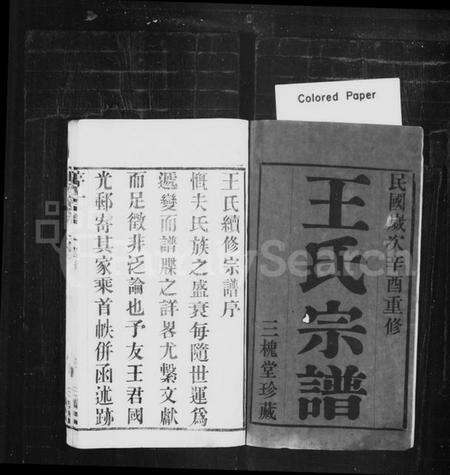 Colored Paper
民國歲次辛酉重修
王氏宗譜
三槐堂珍藏
王氏續修宗譜序
慨夫氏族之盛衰每隨世運爲
遞變而譜牒之詳畧尤繫文獻
而足徵非泛論也予友王君國
光郵寄其家乘首帙併函述跡
FamilySearch